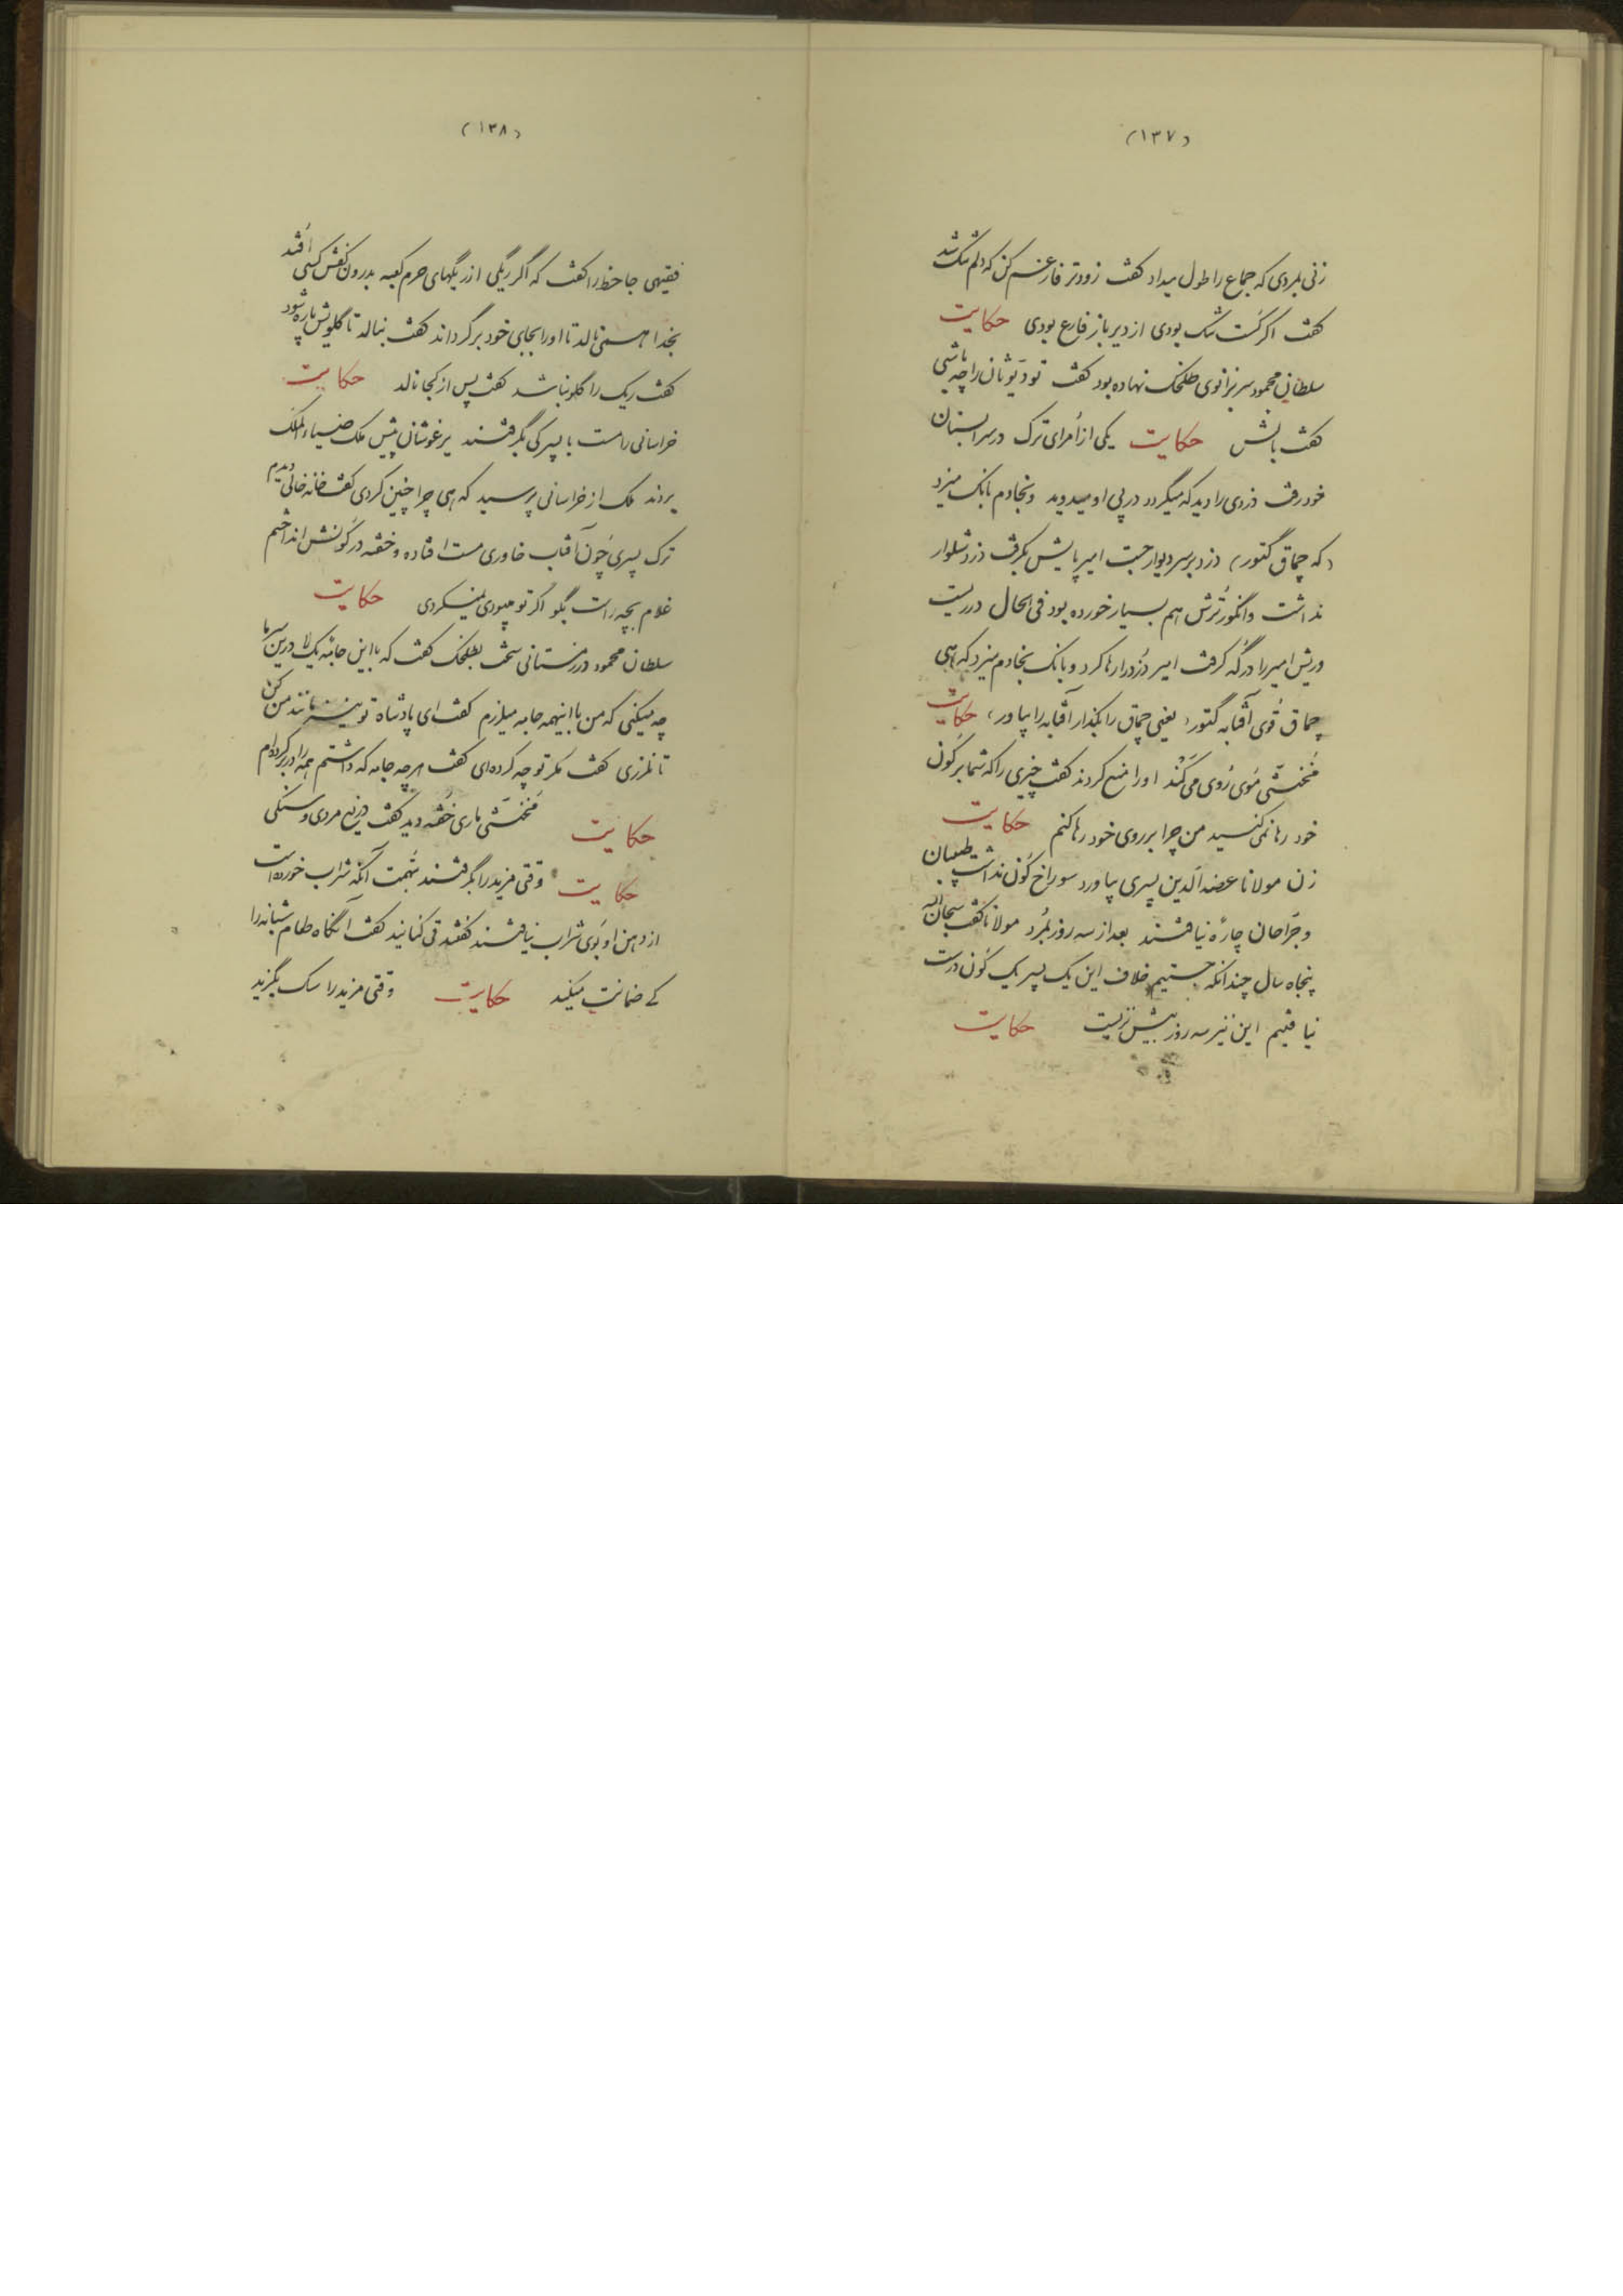 (۱۳۷)
زنی بمردی که جماع را طول میداد گفت زودتر فارغم کن که دلم تنگ شد
گفت اگر کست تنگ بودی از دیر باز فارغ بودی حکایت
سلطان محمود سر بزانوی طلخک نهاده بود گفت تو دیوثان را چه باشی
گفت بالش حکایت یکی از اُمرای ترک در سرابستان
خود رفت دزدی را دید که میگردد در پی او میدوید و بخادم بانک میزد
(که چماق گتور) دزد بر سر دیوار جست امیر پایش بگرفت دزد شلوار
نداشت و انگور تُرش هم بسیار خورده بود فی الحال در ریست
و ریش امیر را در گُه گرفت امیر دُزد را رها کرد و بانک بخادم میزد که هی
چماق قُوی آفتابه گتور، یعنی چماق را بگذار آفتابه را بیاور، حکایت
مُخنّثی مُوی رُوی می‌کَند او را منع کردند گفت چیزی را که شما بر کُون
خود رها نمی‌کنید من چرا بر روی خود رها کنم حکایت
زن مولانا عضدالدین پسری بیاورد سوراخ کُون نداشت طبیبان
و جرّاحان چارهٔ نیافتند بعد از سه روز بمُرد مولانا گفت سبحان الله
پنجاه سال چندانکه جستیم خلاف این یک پسر یک کُون درست
نیافتیم این نیز سه روز بیش نزیست حکایت
(۱۳۸)
فقیهی جاحظ را گفت که اگر ریگی از ریگهای حرم کعبه بدرون کفش کسی اُفتد
بخدا همی نالد تا او را بجای خود برگرداند گفت بنالد تا گلویش پاره شود
گفت ریک را گلو نباشد گفت پس از کجا نالد حکایت
خراسانی را مست با پسرکی بگرفتند یرغوشان پیش ملک ضیاء الملک
بردند ملک از خراسانی پرسید که هی چرا چنین کردی گفت خانه خالی دیدم
ترک پسری چُون آفتاب خاوری مست افتاده و خفته در کُونش انداختم
غلام بچه راست بگو اگر تو میبودی نمیکردی حکایت
سلطان محمود در زمستانی سخت بطلخک گفت که با این جامهٔ یک لا درین سرما
چه میکنی که من با اینهمه جامه میلرزم گفت ای پادشاه تو نیز مانند من کن
تا نلرزی گفت مگر تو چه کرده‌ای گفت هر چه جامه که داشتم همه را در بر کرده‌ام
حکایت مُخنّثی ماری خُفته دید گفت دریغ مردی و سنگی
حکایت وقتی مزید را بگرفتند بتُهمت آنکه شراب خورده است
از دهن او بُوی شراب نیافتند گفتند قی کنانید گفت آنگاه طعام شبانه را
که ضمانت میکند حکایت وقتی مزید را سگ بگزید